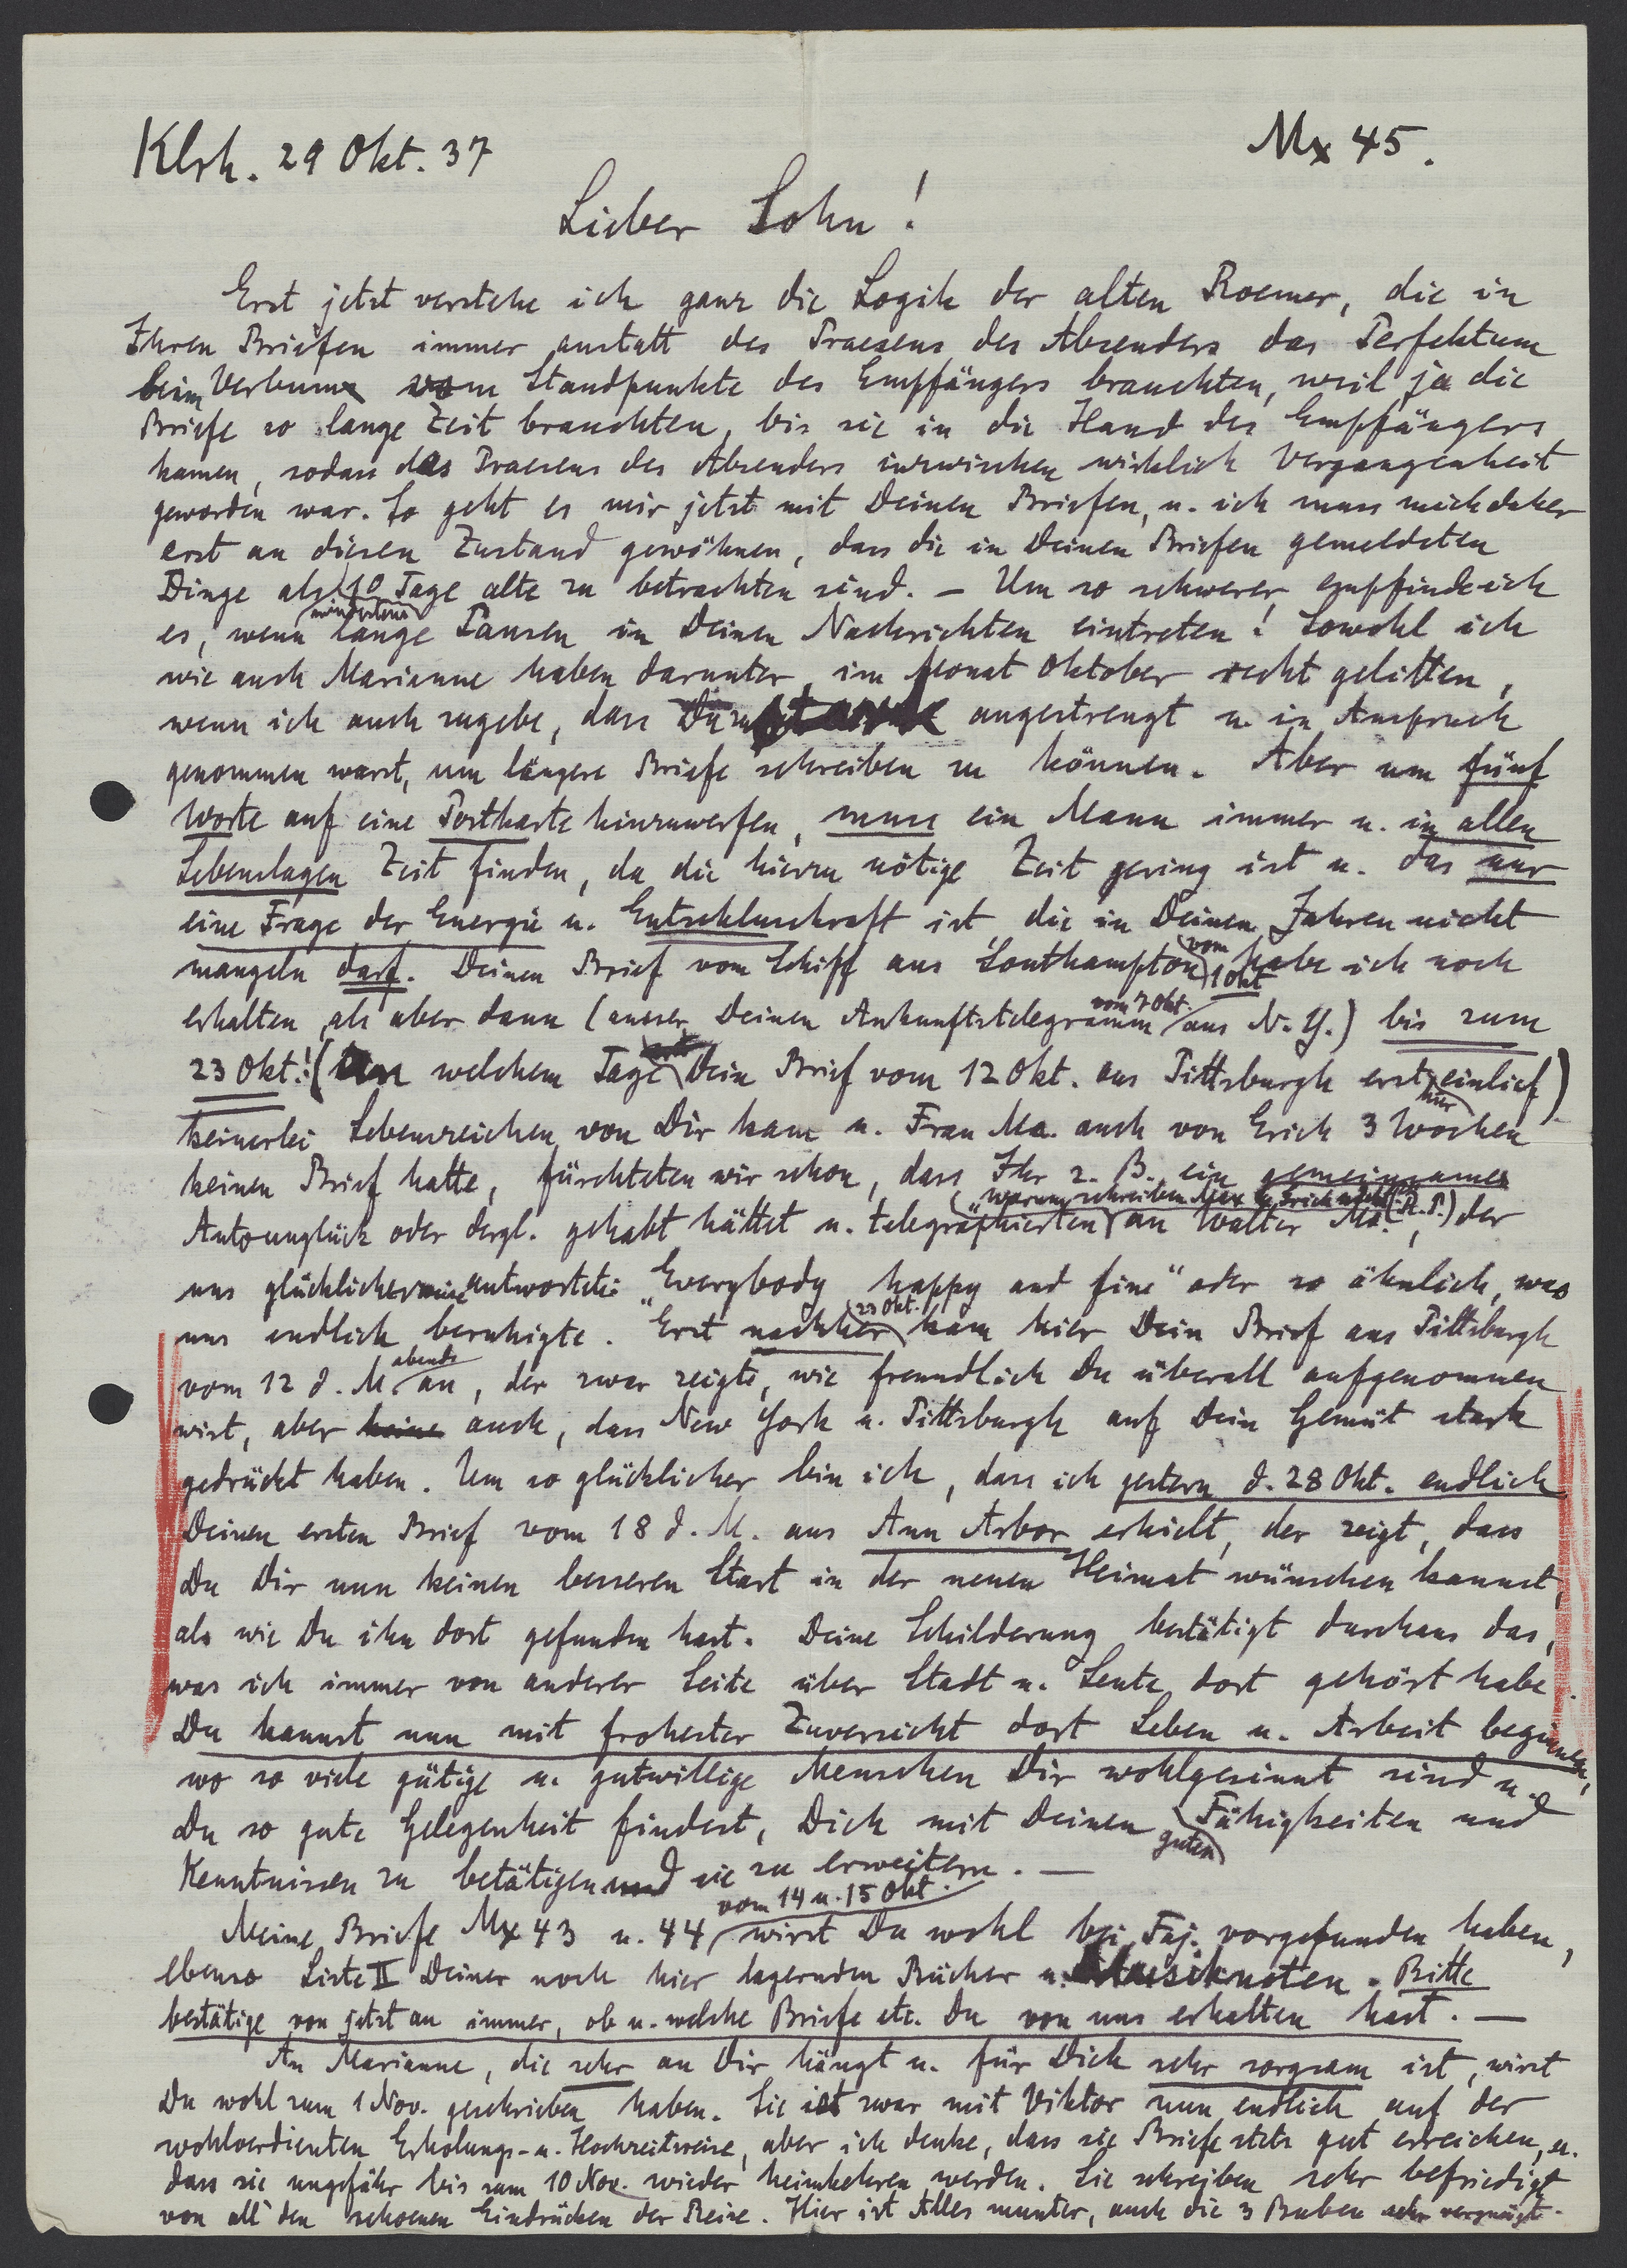 Klrh. 29 Okt. 37
Mx 45.
Lieber Sohn!
Erst jetzt verstehe ich ganz die Logik der alten Roemer, die in
Ihren Briefen immer anstatt des Praesens des Absenders das Perfektum
beim Verbum vom Standpunkte des Empfängers brauchten, weil ja die
Briefe so lange Zeit brauchten, bis sie in die Hand des Empfängers
kamen, sodass das Praesens des Absenders inzwischen wirklich Vergangenheit
geworden war. So geht es mir jetzt mit Deinen Briefen, u. ich muss mich daher
erst an diesen Zustand gewöhnen, dass die in Deinen Briefen gemeldeten
Dinge als mindestens 10 Tage alte zu betrachten sind. – Um so schwerer empfinde ich
es, wenn lange Pausen in Deinen Nachrichten eintreten! Sowohl ich
wie auch Marianne haben darunter im Monat Oktober recht gelitten,
wenn ich auch zugebe, dass Du zu angestrengt u. in Anspruch
genommen warst, um längere Briefe schreiben zu können. Aber um fünf
Worte auf eine Postkarte hinzuwerfen, muss ein Mann immer u. in allen
Lebenslagen Zeit finden, da die hierzu nötige Zeit gering ist u. das nur
eine Frage der Energie u. Entschlusskraft ist, die in Deinen Jahren nicht
mangeln darf. Deinen Brief vom Schiff aus Southampton vom 1 Okt habe ich noch
erhalten, als aber dann (ausser Deinen Ankunftstelegramm vom 7 Okt. aus N.Y.) bis zum
23 Okt.! (an welchem Tage Dein Brief vom 12 Okt. aus Pittsburgh erst hier einlief)
keinerlei Lebenszeichen von Dir kam u. Frau Ma. auch von Erich 3 Wochen
keinen Brief hatte, fürchteten wir schon, dass Ihr z. B. ein gemeinsames
Autounglück oder dergl. gehabt hättet u. telegraphierten "warum schreiben Max u. Erich nicht (R.P.) an Walter Ma., der
uns glücklicherweise antwortete: "Everybody happy and fine" oder so ähnlich, was
uns endlich beruhigte. Erst nachher 23 Okt. kam hier Dein Brief aus Pittsburgh
vom 12 d. M. abends an, der zwar zeigte, wie freundlich Du überall aufgenommen
wirst, aber keine auch, dass New York u. Pittsburgh auf Dein Gemüt stark
gedrückt haben. Um so glücklicher bin ich, dass ich gestern d. 28 Okt. endlich
Deinen ersten Brief vom 18 d. M. aus Ann Arbor erhielt, der zeigt, dass
Du Dir nun keinen besseren Start in der neuen Heimat wünschen kannst,
als wie Du ihn dort gefunden hast. Deine Schilderung bestätigt durchaus das,
was ich immer von anderer Seite über Stadt u. Leute dort gehört habe.
Du kannst nun mit frohester Zuversicht dort Leben u. Arbeit beginnen,
wo so viele gütige u. gutwillige Menschen Dir wohlgesinnt sind u.
Du so gute Gelegenheit findest, Dich mit Deinen guten Fähigkeiten und
Kenntnissen zu betätigen und sie zu erweitern. –
Meine Briefe Mx 43 u. 44 vom 14 u. 15 Okt. wirst Du wohl bei Faj. vorgefunden haben,
ebenso Liste II Deiner noch hier lagernden Bücher u. Musiknoten. Bitte
bestätige von jetzt an immer, ob u. welche Briefe etc. Du von uns erhalten hast. –
An Marianne, die sehr an Dir hängt u. für Dich sehr sorgsam ist, wirst
Du wohl zum 1 Nov. geschrieben haben. Sie ist zwar mit Viktor nun endlich auf der
wohlverdienten Erholungs- u. Hochzeitsreise, aber ich denke, dass sie Briefe stets gut erreichen, u.
dass sie ungefähr bis zum 10 Nov. wieder heimkehren werden. Sie schreiben sehr befriedigt
von all' den schoenen Eindrücken der Reise. Hier ist Alles munter, auch die 3 Buben sehr vergnügt.